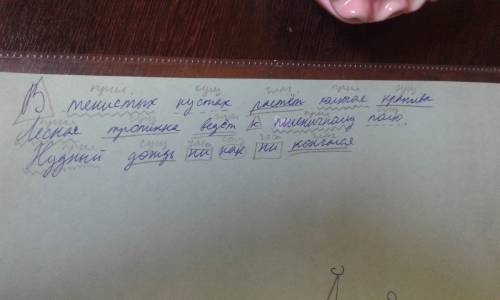 прил. сущ. глаг. прил. сущ.
В тенистых кустах растёт южная крапива
прил. сущ. глаг. прил. сущ.
Лесная тропинка ведёт к пшеничному полю.
прил. сущ. част. част. глаг.
Нудный дождь ни как ни кончался